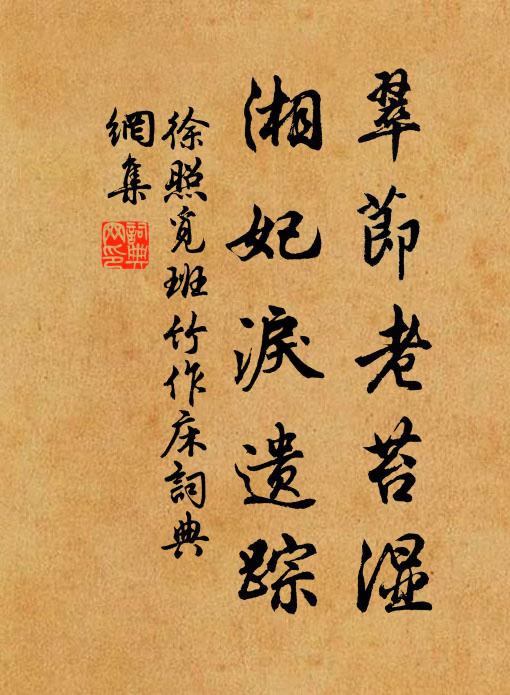 翠節老苔湿
湘妃淚遗踪
徐照覓班竹作床詞典
網集
詞典網印